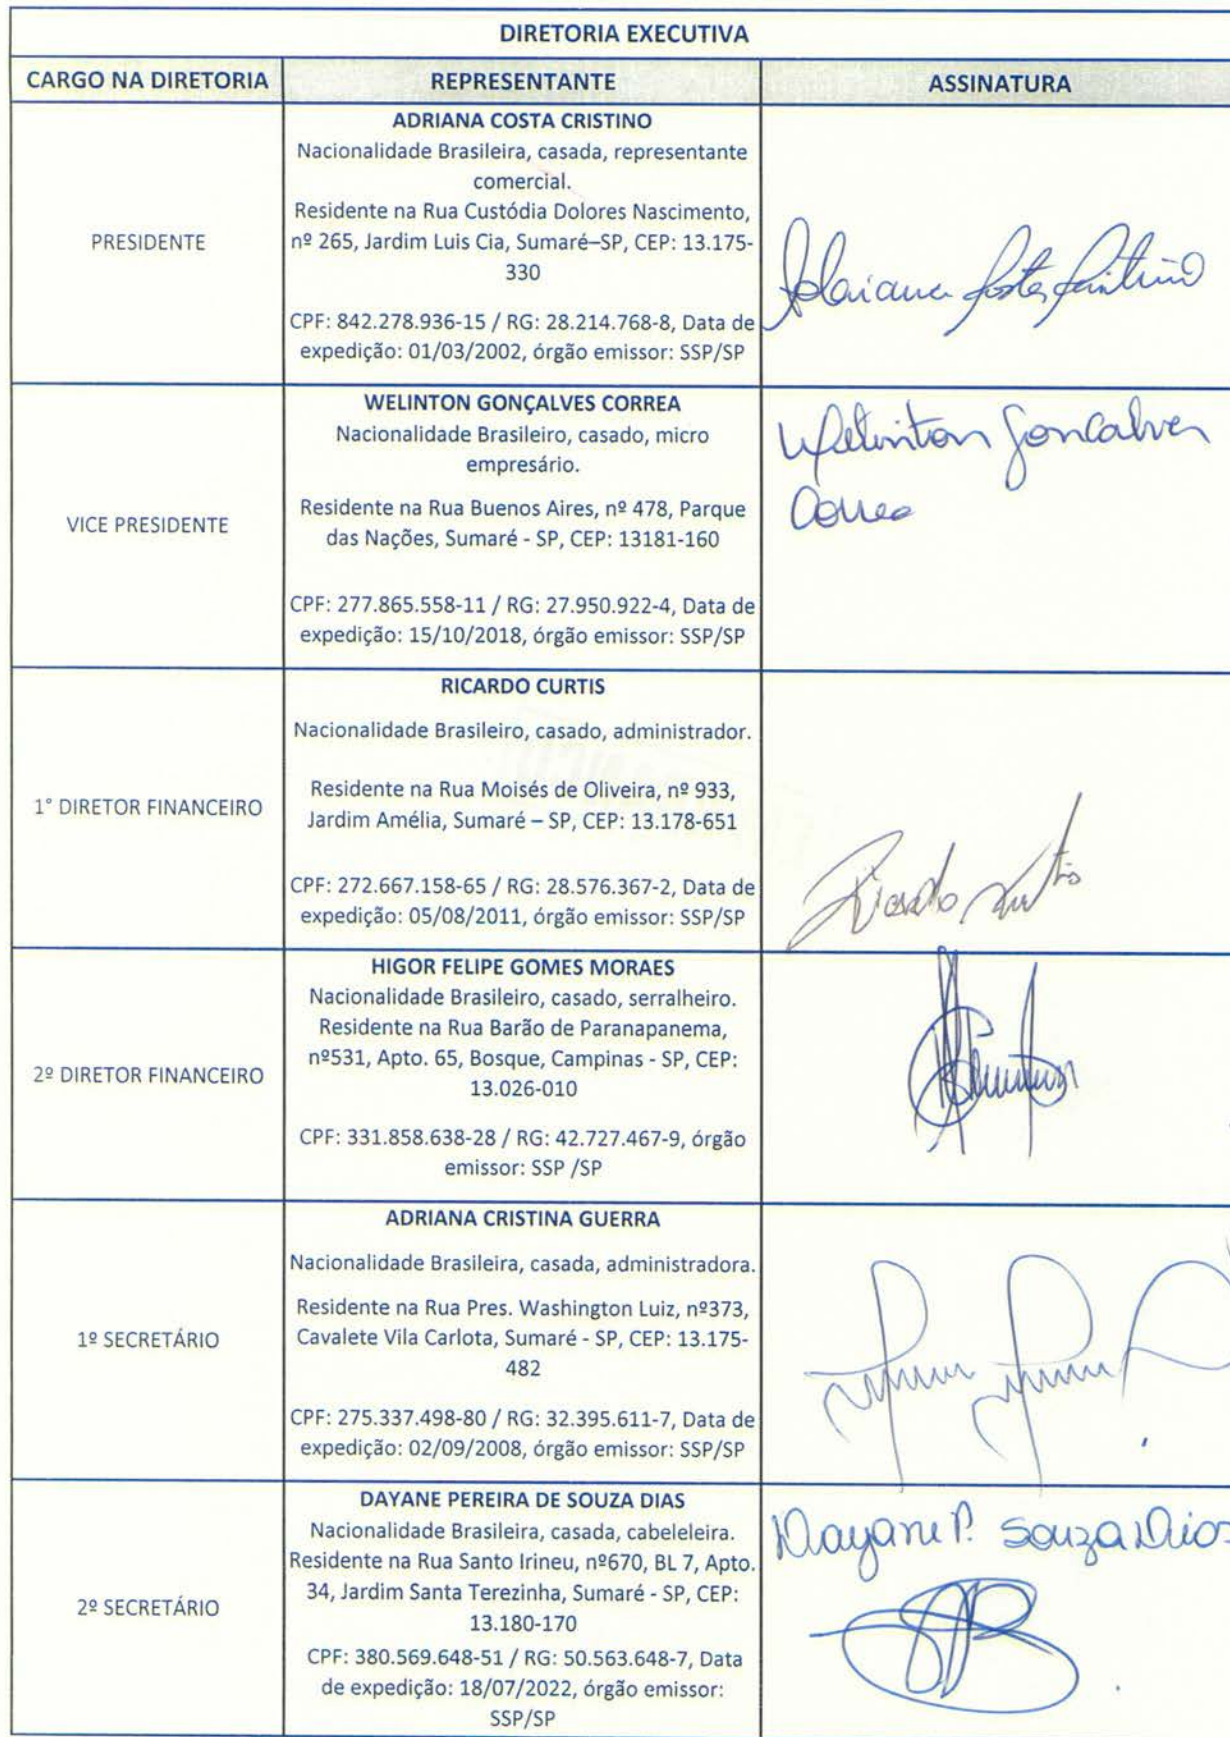 DIRETORIA EXECUTIVA
CARGO NA DIRETORIA REPRESENTANTE ASSINATURA
PRESIDENTE
ADRIANA COSTA CRISTINO
Nacionalidade Brasileira, casada, representante
comercial.
Residente na Rua Custódia Dolores Nascimento,
nº 265, Jardim Luis Cia, Sumaré–SP, CEP: 13.175-
330
CPF: 842.278.936-15 / RG: 28.214.768-8, Data de
expedição: 01/03/2002, órgão emissor: SSP/SP
Adriana Costa Cristino
VICE PRESIDENTE
WELINTON GONÇALVES CORREA
Nacionalidade Brasileiro, casado, micro
empresário.
Residente na Rua Buenos Aires, nº 478, Parque
das Nações, Sumaré - SP, CEP: 13181-160
CPF: 277.865.558-11 / RG: 27.950.922-4, Data de
expedição: 15/10/2018, órgão emissor: SSP/SP
Welinton Goncalves
Correa
1° DIRETOR FINANCEIRO
RICARDO CURTIS
Nacionalidade Brasileiro, casado, administrador.
Residente na Rua Moisés de Oliveira, nº 933,
Jardim Amélia, Sumaré – SP, CEP: 13.178-651
CPF: 272.667.158-65 / RG: 28.576.367-2, Data de
expedição: 05/08/2011, órgão emissor: SSP/SP
Ricardo Curtis
2º DIRETOR FINANCEIRO
HIGOR FELIPE GOMES MORAES
Nacionalidade Brasileiro, casado, serralheiro.
Residente na Rua Barão de Paranapanema,
nº531, Apto. 65, Bosque, Campinas - SP, CEP:
13.026-010
CPF: 331.858.638-28 / RG: 42.727.467-9, órgão
emissor: SSP /SP
1º SECRETÁRIO
ADRIANA CRISTINA GUERRA
Nacionalidade Brasileira, casada, administradora.
Residente na Rua Pres. Washington Luiz, nº373,
Cavalete Vila Carlota, Sumaré - SP, CEP: 13.175-
482
CPF: 275.337.498-80 / RG: 32.395.611-7, Data de
expedição: 02/09/2008, órgão emissor: SSP/SP
2º SECRETÁRIO
DAYANE PEREIRA DE SOUZA DIAS
Nacionalidade Brasileira, casada, cabeleleira.
Residente na Rua Santo Irineu, nº670, BL 7, Apto.
34, Jardim Santa Terezinha, Sumaré - SP, CEP:
13.180-170
CPF: 380.569.648-51 / RG: 50.563.648-7, Data
de expedição: 18/07/2022, órgão emissor:
SSP/SP
Dayane P. Souza Dias